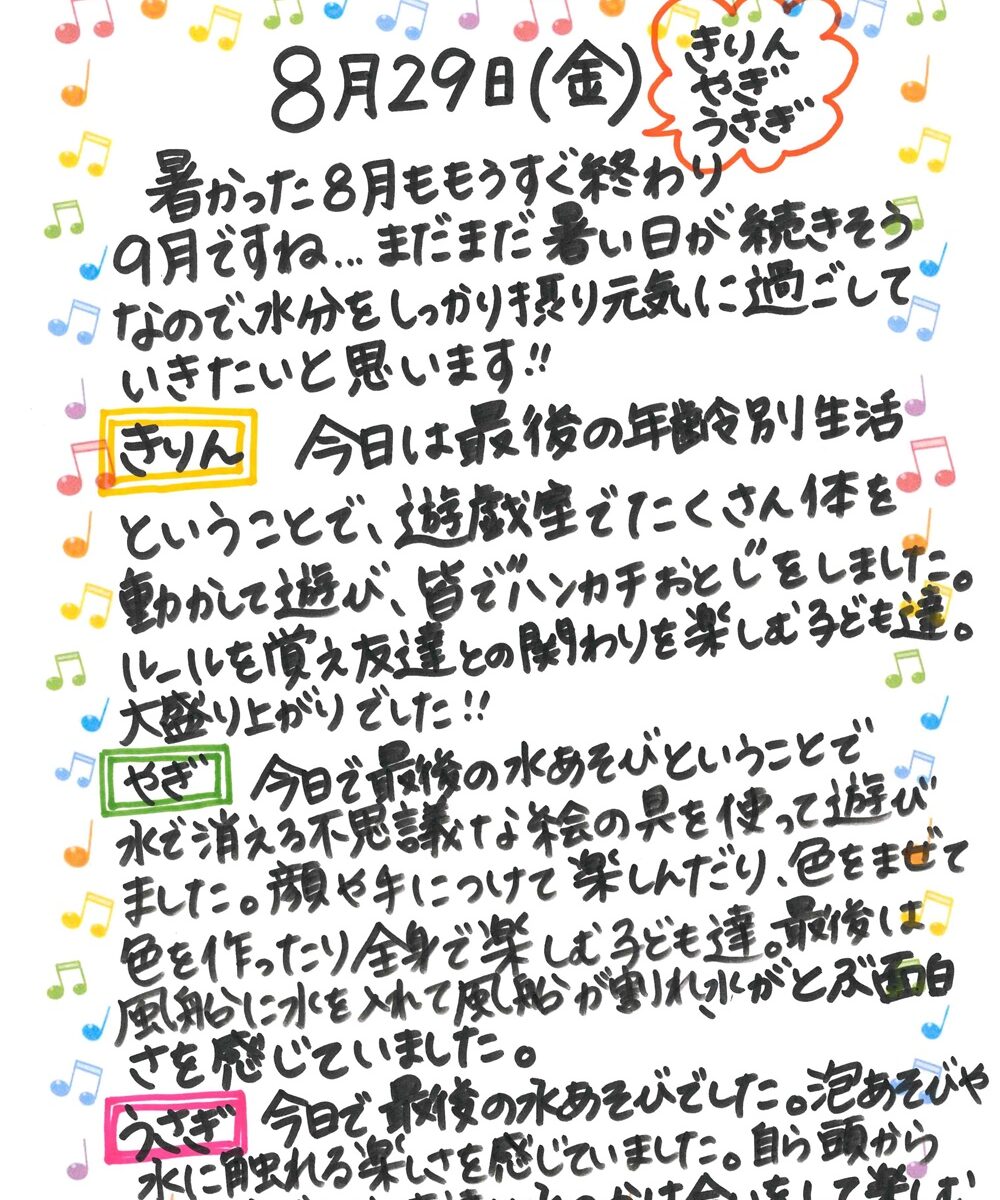 8月29日(金)
きりん
やぎ
うさぎ
暑かった8月ももうすぐ終わり
9月ですね...まだまだ暑い日が続きそう
なので、水分をしっかり摂り元気に過ごして
いきたいと思います!!
きりん 今日は最後の年齢別生活
ということで、遊戯室でたくさん体を
動かして遊び、皆でハンカチおとしをしました。
ルールを覚え友達との関わりを楽しむ子ども達。
大盛り上がりでした!!
やぎ 今日で最後の水あそびということで
水で消える不思議な絵の具を使って遊び
ました。顔や手につけて楽しんだり、色をまぜて
色を作ったり全身で楽しむ子ども達。最後は
風船に水を入れて風船が割れ、水がとぶ面白
さを感じていました。
うさぎ 今日で最後の水あそびでした。泡あそびや
水に触れる楽しさを感じていました。自ら頭から